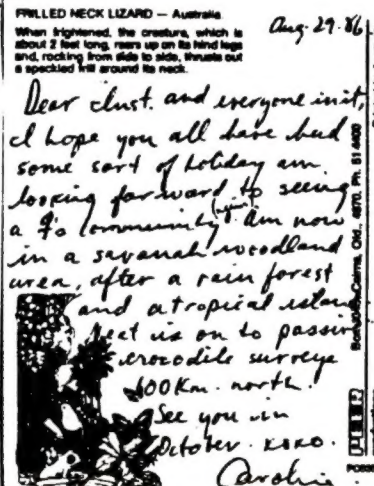 FRILLED NECK LIZARD — Australia
When frightened, the creature, which is
about 2 feet long, rears up on its hind legs
and, rocking from side to side, thrusts out
a speckled frill around its neck.
Aug-29-86
Dear clust. and everyone in it,
I hope you all have had
some sort of holiday am
looking forward to seeing
a community again Am now
in a savanah woodland
area, after a rain forest
and a tropical island
next is on to passive
crocodile surveys
600 Km. north.
See you in
October. xoxo.
Caroline
Cairns, Qld., 4870, Ph. 51 4400